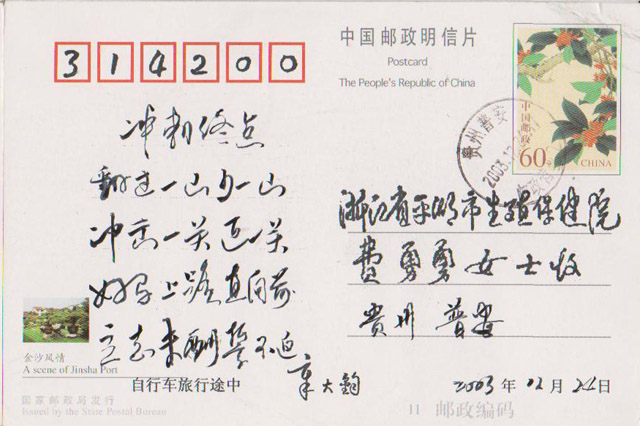 314200
中国邮政明信片
Postcard
The People's Republic of China
中国邮政
60分
CHINA
贵州普安
2003.12
冲刺终点
翻过一山又一山
冲击一关区一关
好马上路直向前
立志未酬誓不迫
自行车旅行途中
章大钧
浙江省平湖市生殖保健院
费勇勇女士收
贵州 普安
2003年12月24日
金沙风情
A scene of Jinsha Port
国家邮政局发行
Issued by the State Postal Bureau
11 邮政编码